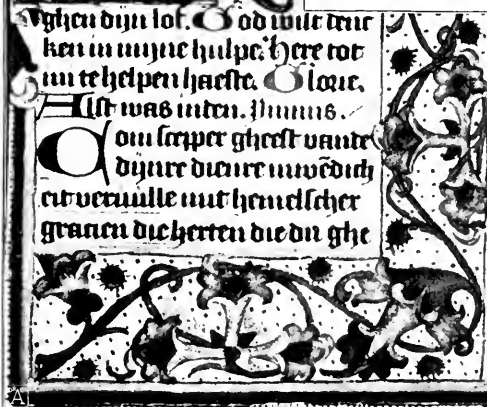 ghen dijn lof. God wilt denc
ken in mijne hulpe. Here tot
mi te helpen haeste. Glorie.
Alst was inden. Ymnus.
Com scepper gheest vande
dijnre dienre inwēdich
eit vervulle mit hemelscher
gracien die herten die du ghe
A